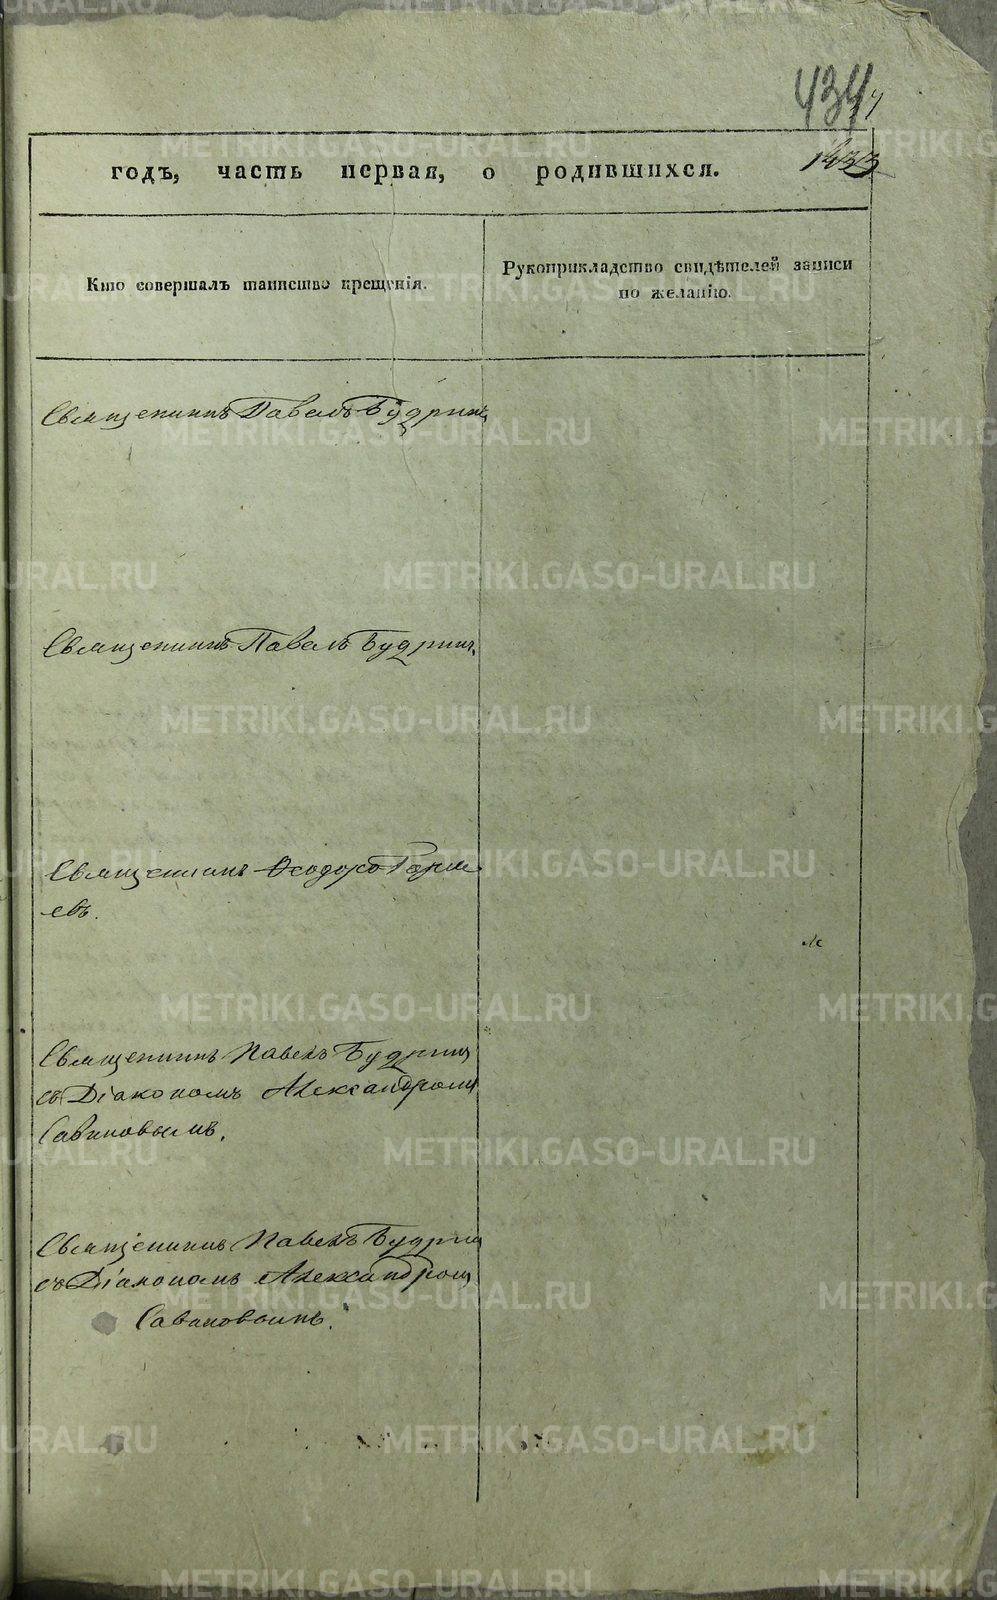 434
годъ, часть первая, о родившихся.
Кто совершалъ таинство крещенія.
Рукоприкладство свидѣтелей записи
по желанію.
Священникъ Павелъ Будринъ
Священникъ Павелъ Будринъ
Священникъ Ѳеодоръ
евъ.
Священникъ Павелъ Будрин
съ Діакономъ Александромъ
Савиновымъ.
Священникъ Павелъ Будрин
съ Діакономъ Александром
Савиновымъ.
METRIKI.GASO-URAL.RU